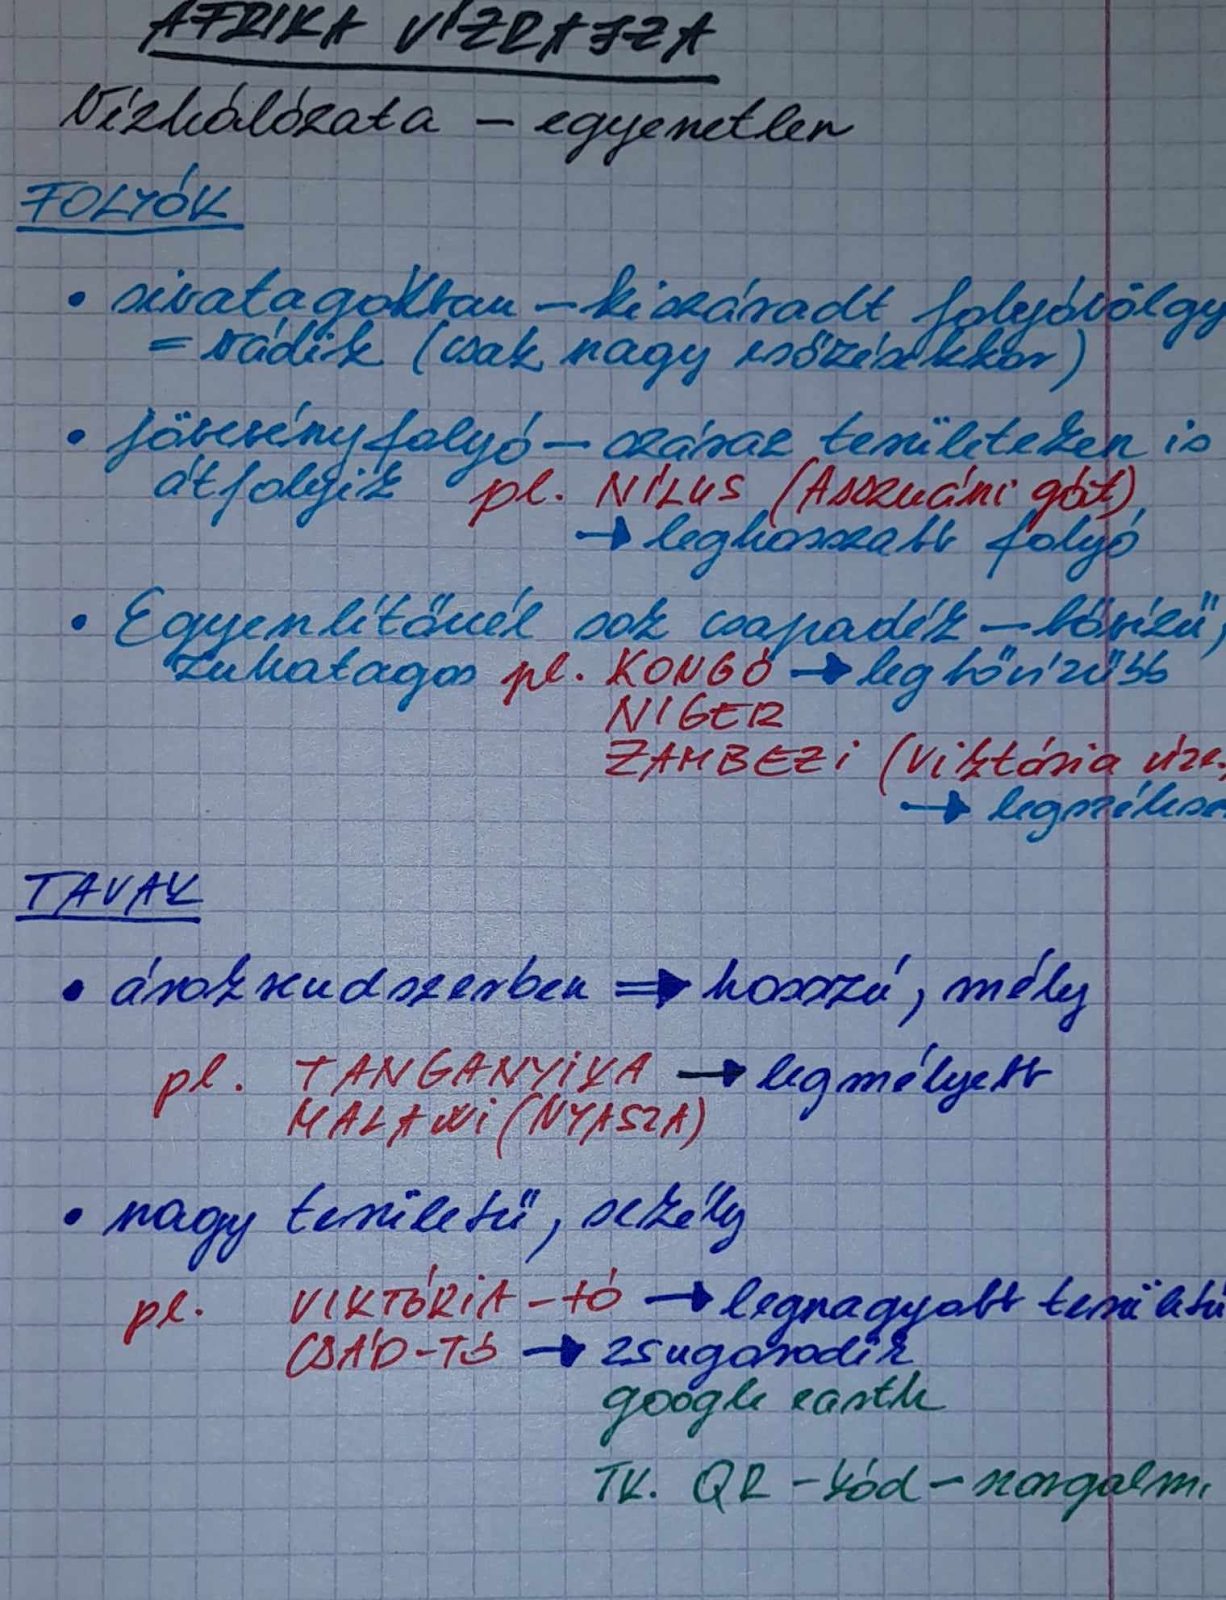 AFRIKA VÍZRAJZA
Vízhálózata – egyenetlen
FOLYÓK
• sivatagokban – kiszáradt folyóvölgy
= vádik (csak nagy esőzésekkor)
• jövevényfolyó – száraz területeken is
átfolyik pl. NÍLUS (Asszuáni gát)
→ leghosszabb folyó
• Egyenlítőnél sok csapadék – bővizű,
zuhatagos pl. KONGÓ → legbővizűbb
NIGER
ZAMBEZI (Viktória víze.
→ legszélese
TAVAK
• árokrendszerben ⇒ hosszú, mély
pl. TANGANYIKA → legmélyebb
MALAWI (NYASZA)
• nagy területű, sekély
pl. VIKTÓRIA-TÓ → legnagyobb területű
CSÁD-TÓ → zsugorodik
google earth
TK. QR-kód – szorgalmi